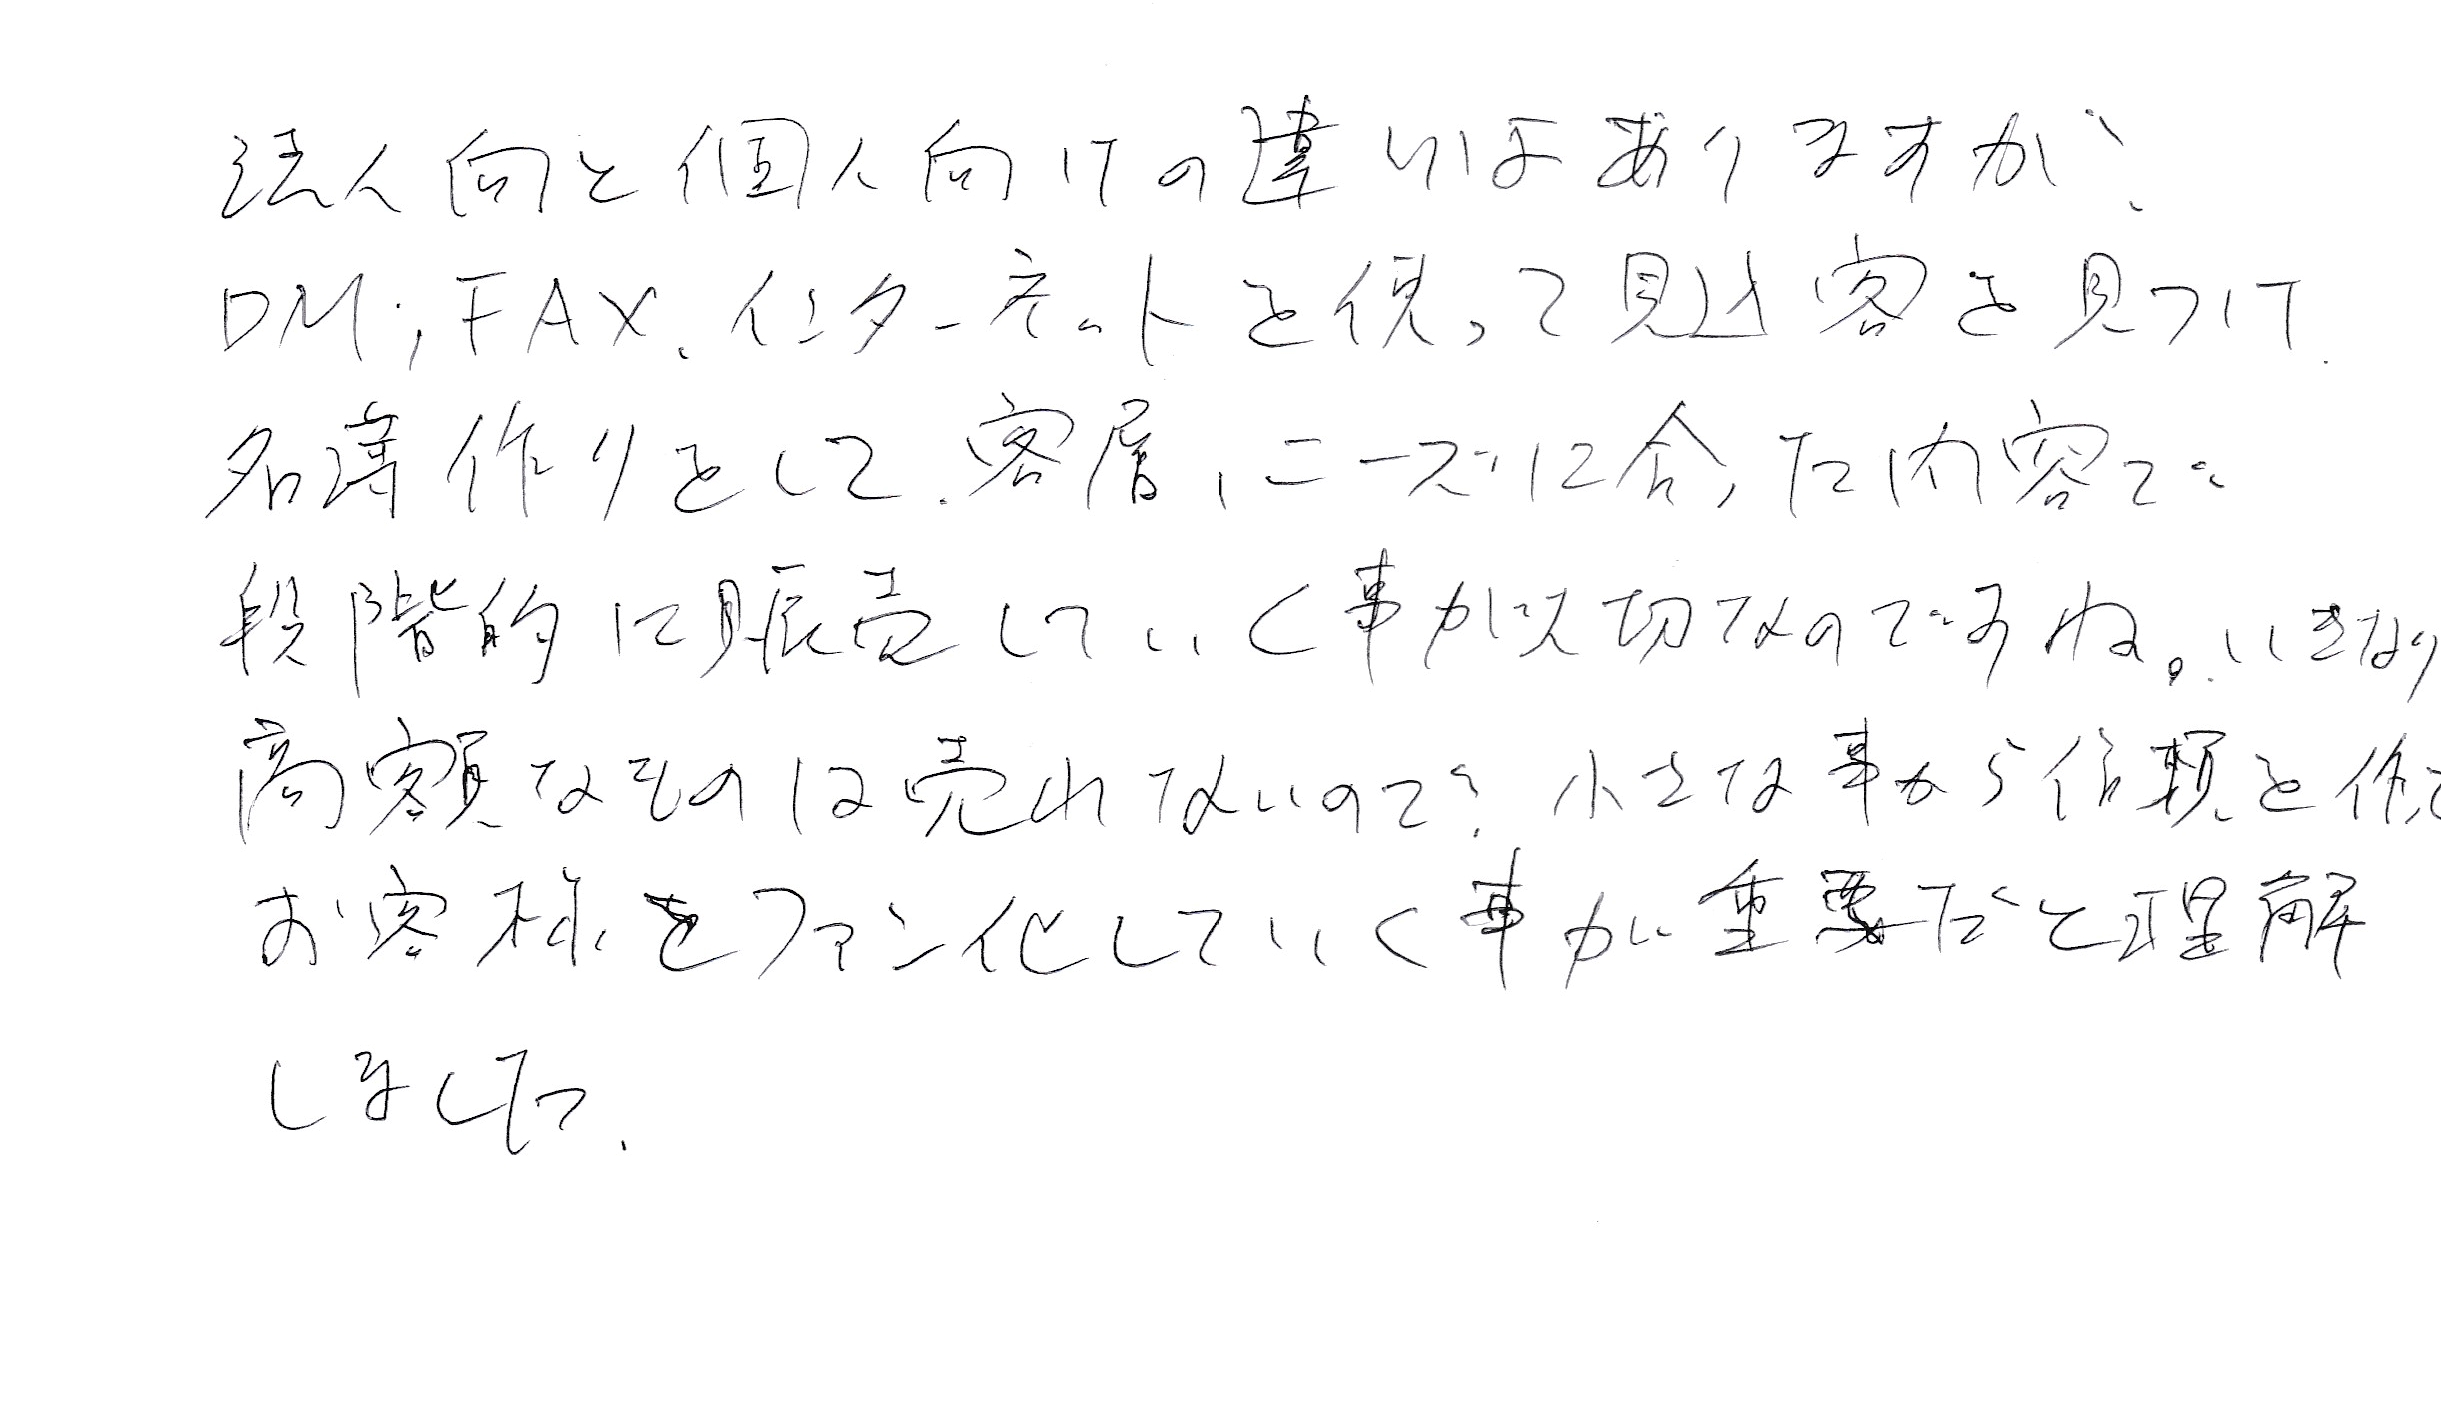 法人向と個人向けの違いはありますが、
DM、FAX、インターネットを使って見込客を見つけ、
名簿作りをして、客層、ニーズに合った内容で
段階的に販売していく事が大切なのですね。いきなり
高額なものは売れないので、小さな事から信頼を作って
お客様をファン化していく事が重要だと理解
しました。